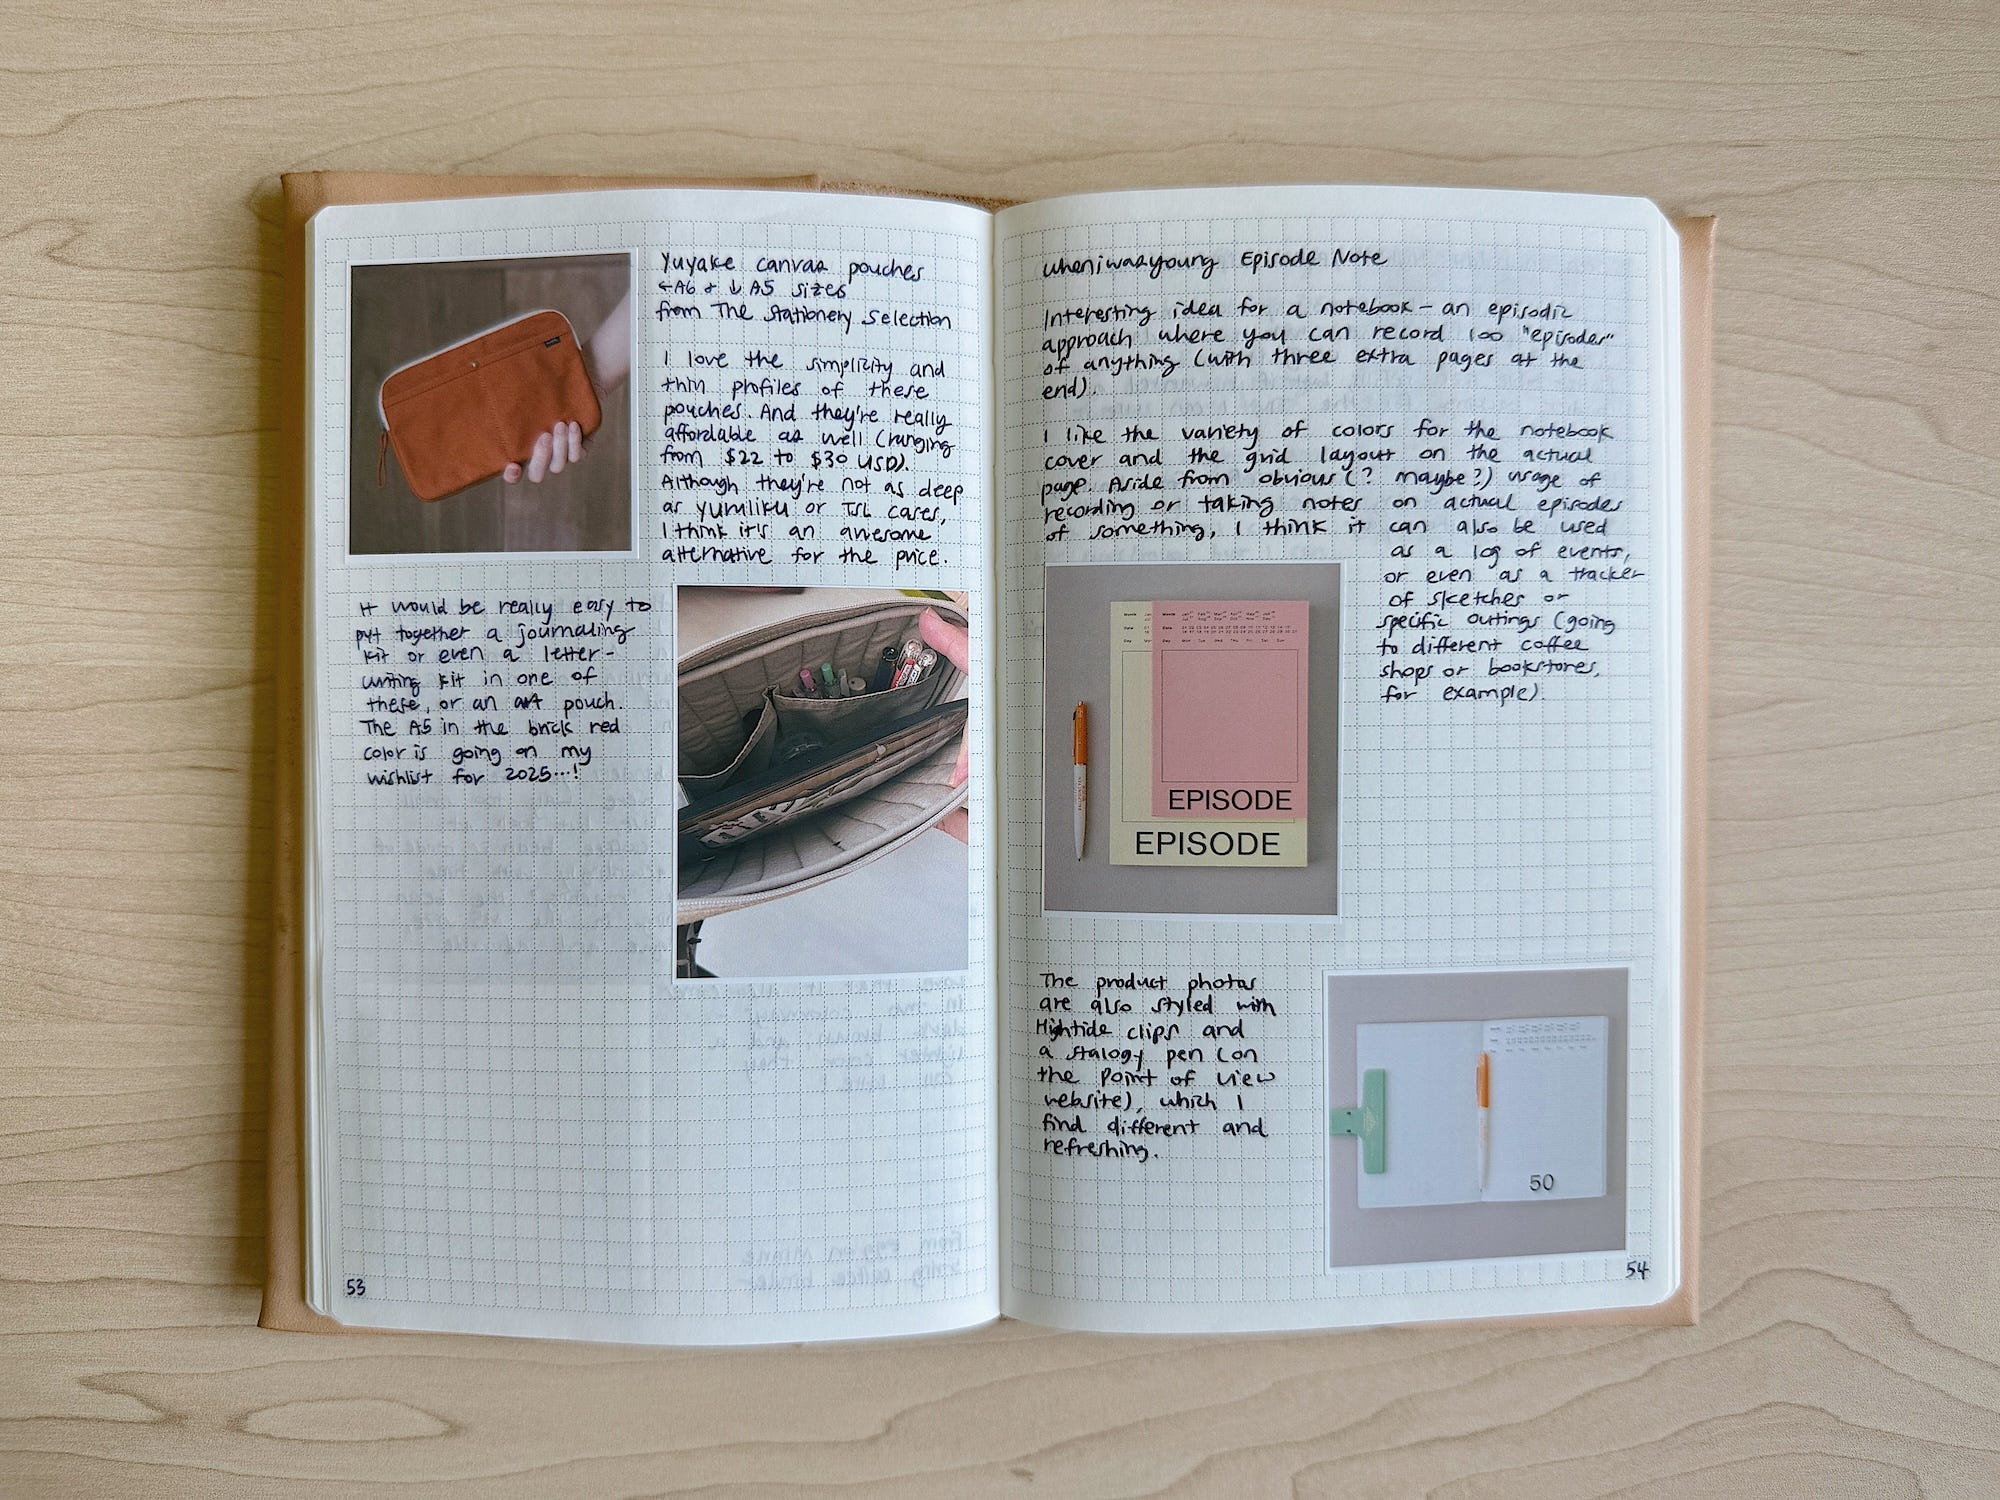 Yuyake canvas pouches
←A6 + ↓ A5 sizes
from The Stationery Selection
I love the simplicity and
thin profiles of these
pouches. And they're really
affordable as well (ranging
from $22 to $30 USD).
Although they're not as deep
as yumiliku or TSL cases,
I think it's an awesome
alternative for the price.
It would be really easy to
put together a journaling
kit or even a letter-
writing kit in one of
these, or an art pouch.
The A5 in the brick red
color is going on my
wishlist for 2025...!
53
wheniwasyoung Episode Note
Interesting idea for a notebook – an episodic
approach where you can record 100 "episodes"
of anything (with three extra pages at the
end).
I like the variety of colors for the notebook
cover and the grid layout on the actual
page. Aside from obvious (? maybe?) usage of
recording or taking notes on actual episodes
of something, I think it can also be used
as a log of events,
or even as a tracker
of sketches or
specific outings (going
to different coffee
shops or bookstores,
for example).
Month
Date
Day
EPISODE
EPISODE
The product photos
are also styled with
Hightide clips and
a stalogy pen (on
the Point of View
website), which I
find different and
refreshing.
50
54